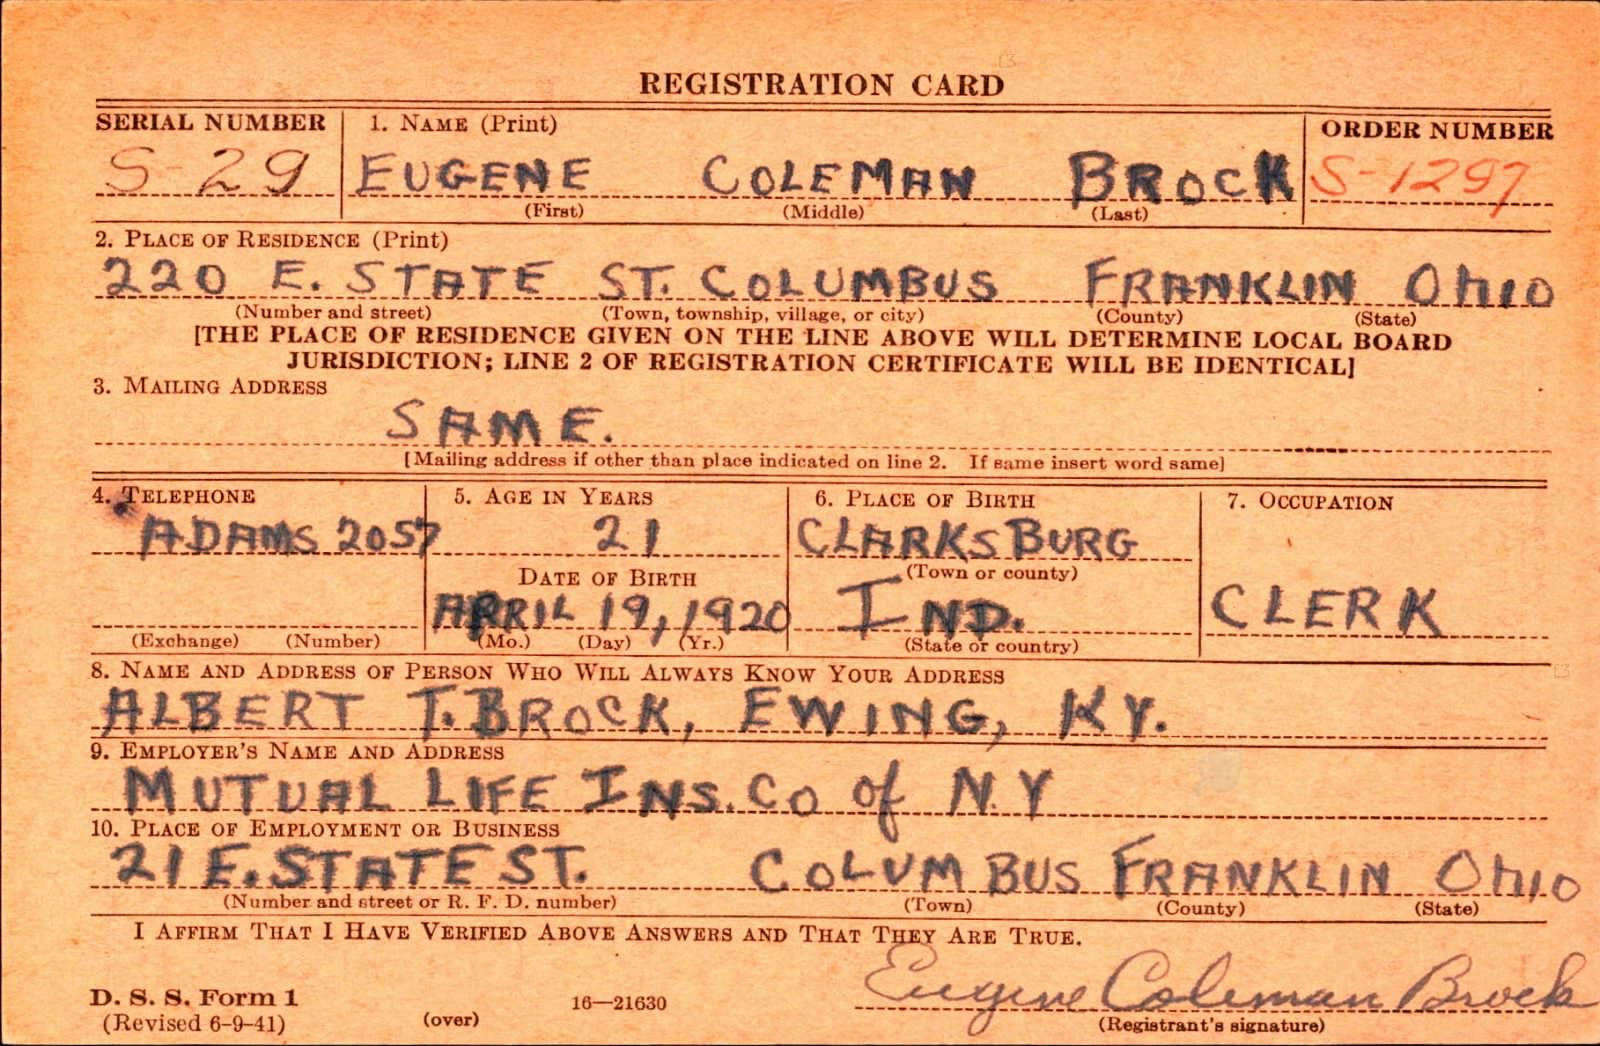 REGISTRATION CARD
SERIAL NUMBER 1. NAME (Print) ORDER NUMBER
S-29 EUGENE COLEMAN BROCK S-1297
(First) (Middle) (Last)
2. PLACE OF RESIDENCE (Print)
220 E. STATE ST. COLUMBUS FRANKLIN OHIO
(Number and street) (Town, township, village, or city) (County) (State)
[THE PLACE OF RESIDENCE GIVEN ON THE LINE ABOVE WILL DETERMINE LOCAL BOARD
JURISDICTION; LINE 2 OF REGISTRATION CERTIFICATE WILL BE IDENTICAL]
3. MAILING ADDRESS
SAME.
[Mailing address if other than place indicated on line 2. If same insert word same]
4. TELEPHONE 5. AGE IN YEARS 6. PLACE OF BIRTH 7. OCCUPATION
ADAMS 2057 21 CLARKSBURG
DATE OF BIRTH (Town or county)
APRIL 19, 1920 IND. CLERK
(Exchange) (Number) (Mo.) (Day) (Yr.) (State or country)
8. NAME AND ADDRESS OF PERSON WHO WILL ALWAYS KNOW YOUR ADDRESS
ALBERT T. BROCK, EWING, KY.
9. EMPLOYER'S NAME AND ADDRESS
MUTUAL LIFE INS. CO of N.Y
10. PLACE OF EMPLOYMENT OR BUSINESS
21 E. STATE ST. COLUMBUS FRANKLIN OHIO
(Number and street or R. F. D. number) (Town) (County) (State)
I AFFIRM THAT I HAVE VERIFIED ABOVE ANSWERS AND THAT THEY ARE TRUE.
Eugene Coleman Brock
D. S. S. Form 1
(Revised 6-9-41) (over) 16—21630 (Registrant's signature)